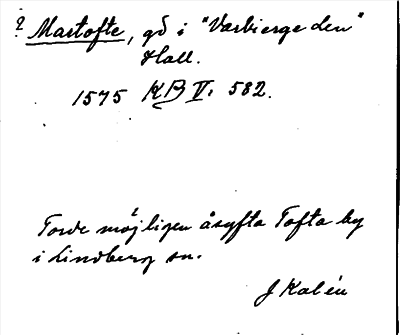 ? Martofte, gd i "Varbierge len"
Hall.
1575 KB V: 582.
Torde möjligen åsyfta Tofta by
i Lindberg sn.
J Kalén